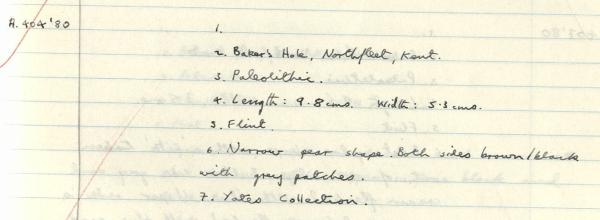 A. 404 '80
1.
2. Baker's Hole, Northfleet, Kent.
3. Paleolithic.
4. Length: 9.8cms. Width: 5.3cms.
5. Flint.
6. Narrow pear shape. Both sides brown/black
with grey patches.
7. Yates Collection.